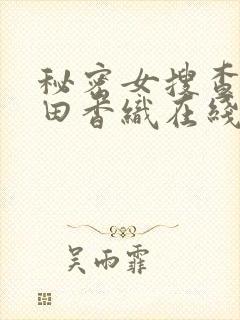 秘密女搜查
田香織在綫
吴雨霏